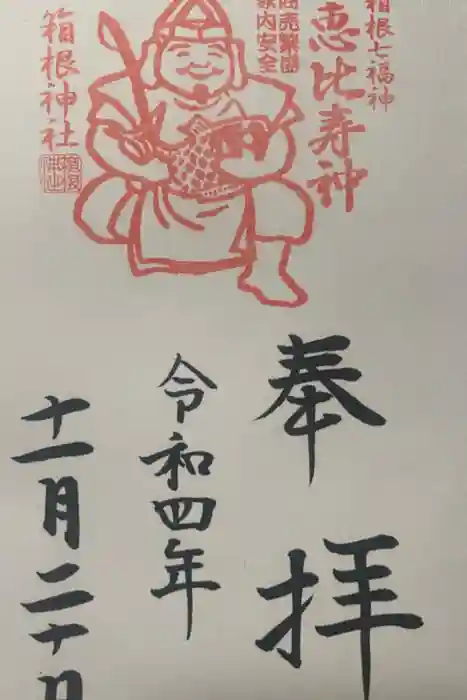 箱根七福神
恵比寿神
商売繁盛
家内安全
箱根神社
奉拝
令和四年
十一月二十日